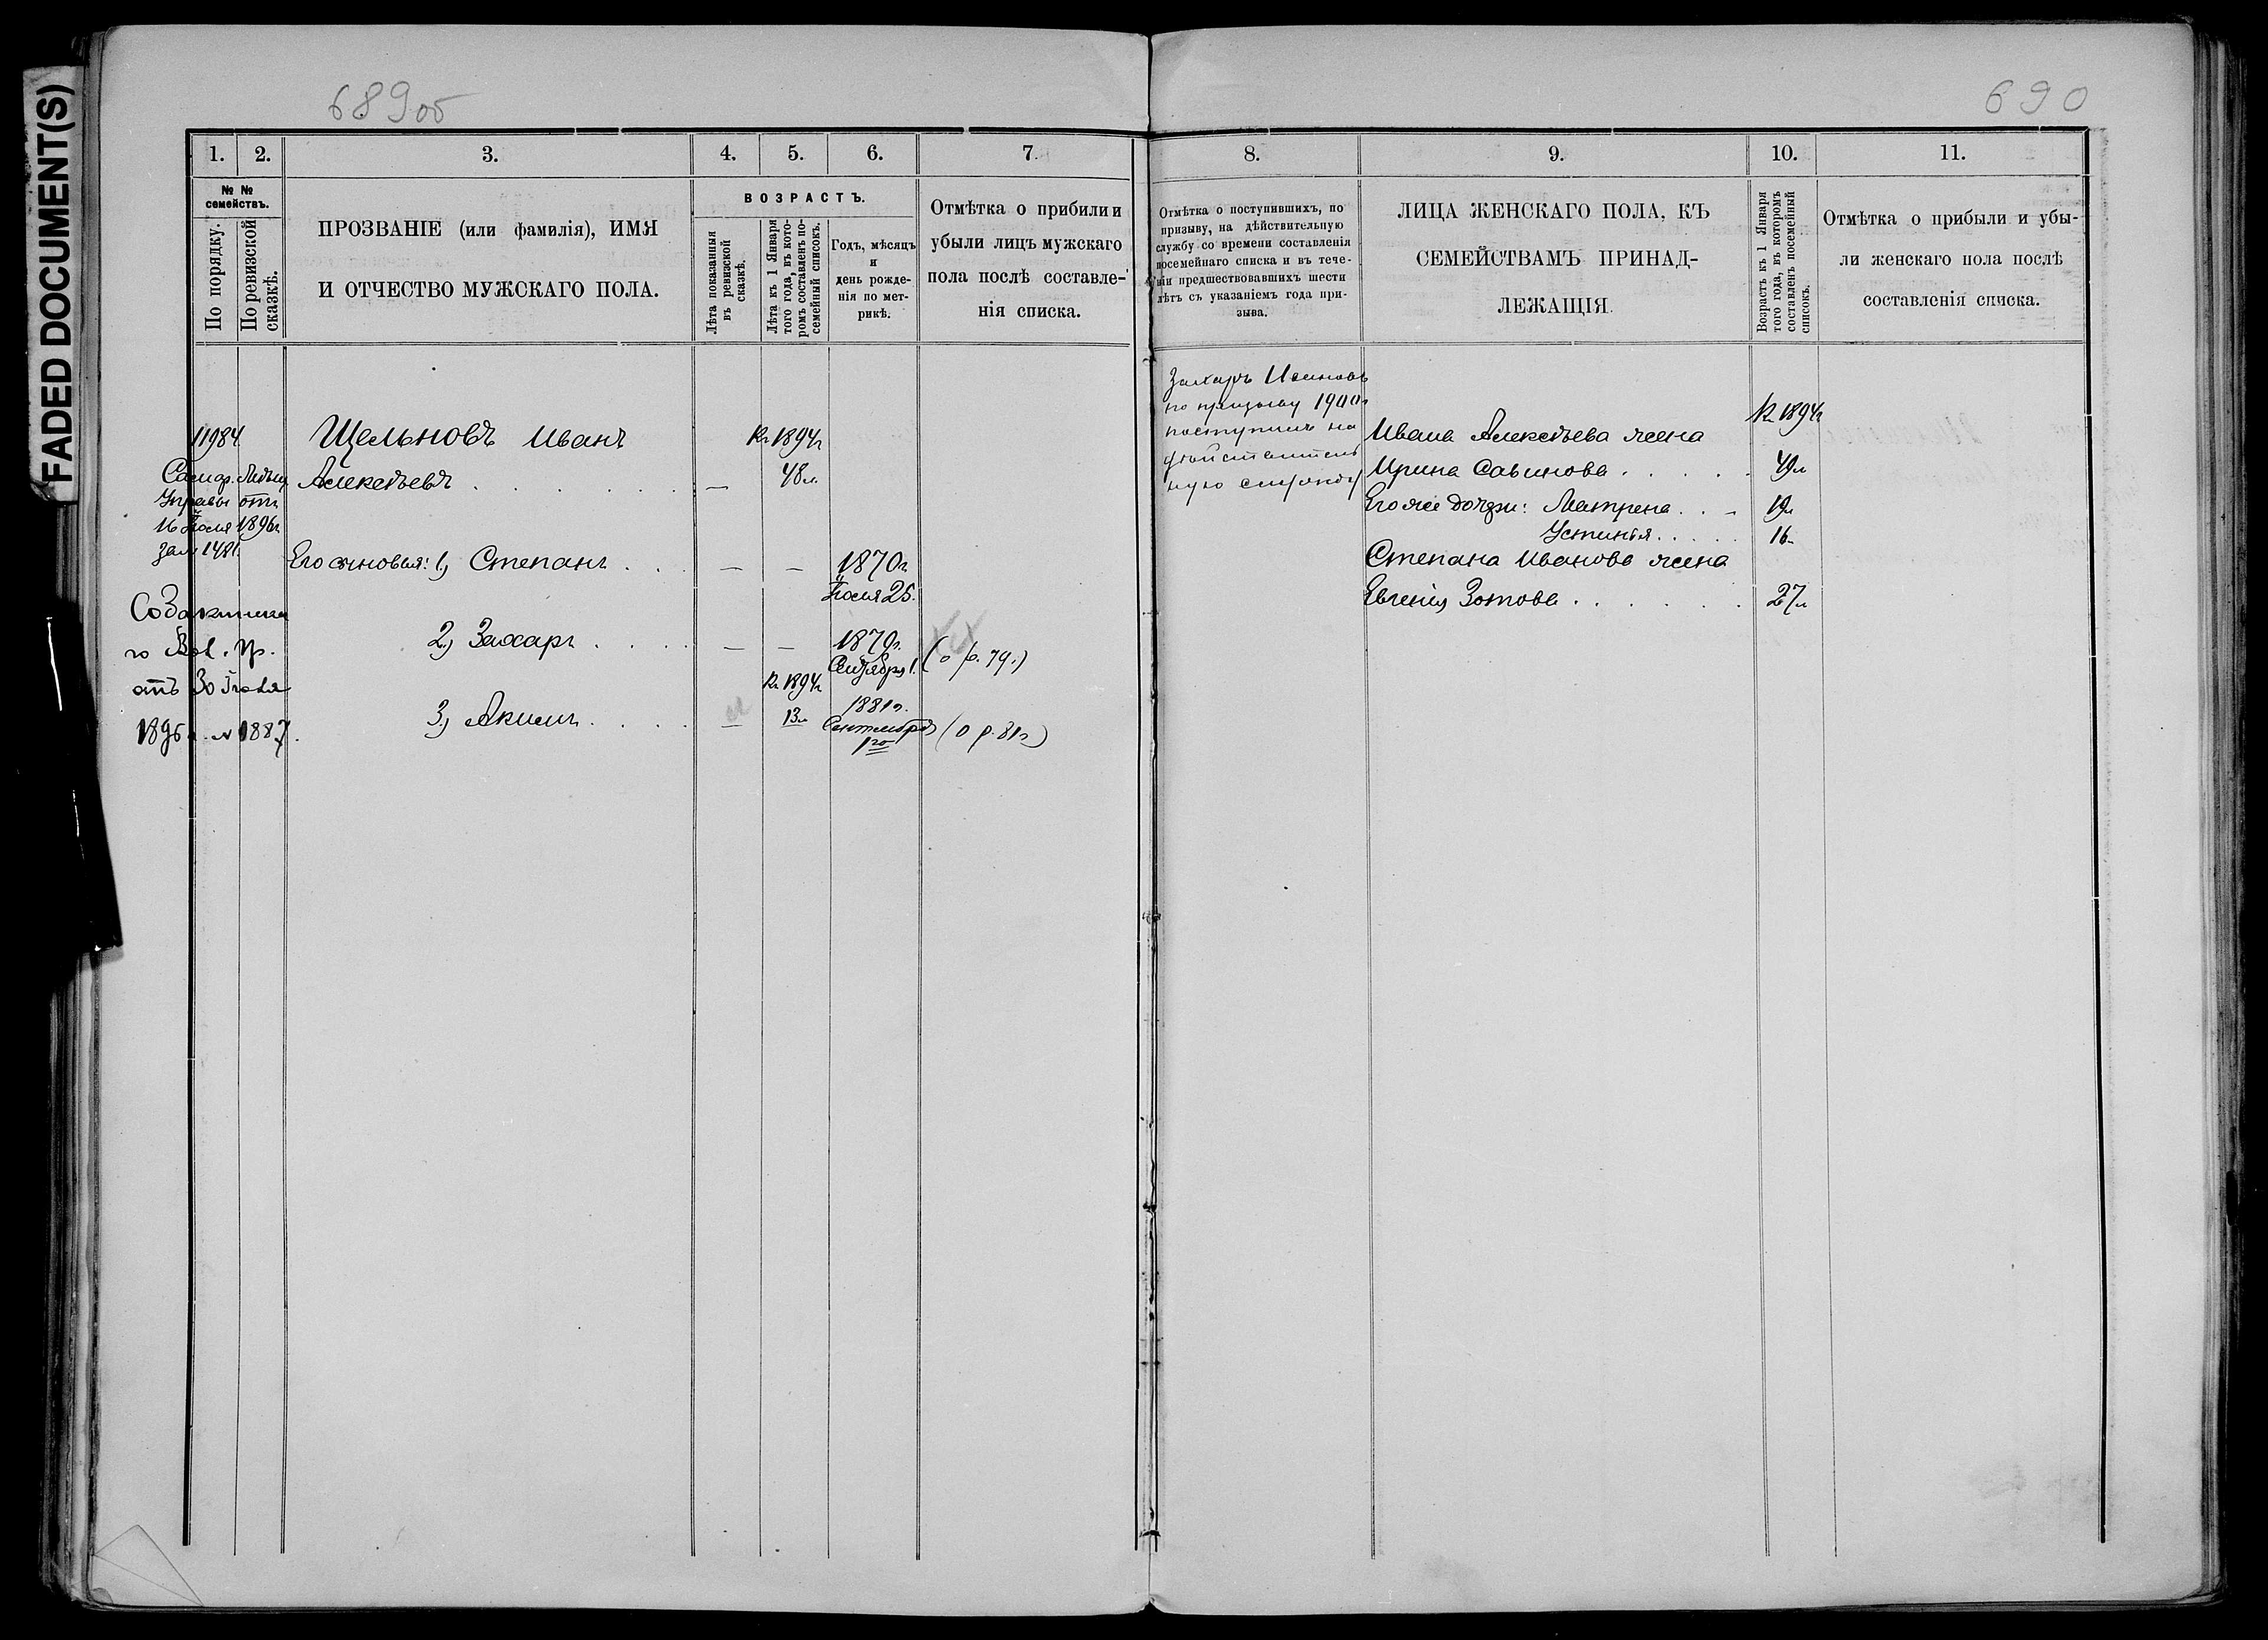 FADED DOCUMENT(S)
689 об
690
1. 2. 3. 4. 5. 6. 7.
№ № семействъ.
По порядку.
По ревизской сказкѣ.
ПРОЗВАНІЕ (или фамилія), ИМЯ
И ОТЧЕСТВО МУЖСКАГО ПОЛА.
ВОЗРАСТЪ.
Лѣта показанныя
въ ревизской
сказкѣ.
Лѣта къ 1 Января
того года, въ кото-
ромъ составленъ по-
семейный списокъ.
Годъ, мѣсяцъ
и
день рожде-
нія по мет-
рикѣ.
Отмѣтка о прибыли и
убыли лицъ мужскаго
пола послѣ составле-
нія списка.
11984
Щельновъ Иванъ
Алексѣевъ . . . . . . . —
К. 1894г
48 л.
Самар.
Управы отъ
16 Іюля 1896г
за № 1481
Его сыновья: 1) Степанъ . . . — — 1870г.
Іюля 25.
го Вол. Пр.
отъ 30 Іюля
1896 г. № 1887.
2) Захаръ . . . . — — 1879г. (о р. 79.)
Сентября 1.
К. 1894г
3) Акимъ . . . . — 13 л 1881г.
Сентября (о р. 81г)
1го
8. 9. 10. 11.
Отмѣтка о поступившихъ, по
призыву, на дѣйствительную
службу со времени составленія
посемейнаго списка и въ тече-
ніи предшествовавшихъ шести
лѣтъ съ указаніемъ года при-
зыва.
ЛИЦА ЖЕНСКАГО ПОЛА, КЪ
СЕМЕЙСТВАМЪ ПРИНАД-
ЛЕЖАЩІЯ.
Возрастъ къ 1 Января
того года, въ которомъ
составленъ посемейный
списокъ.
Отмѣтка о прибыли и убы-
ли женскаго пола послѣ
составленія списка.
Захаръ Ивановъ
по призыву 1900г
поступилъ на
дѣйствитель
ную службу
К. 1894г
Ивана Алексѣева жена
Ирина Савинова . . . . . 49 л
Его же дочери: Матрена . . . 19 л
Устинья . . . . . 16 л
Степана Иванова жена
Евгенія Зотова . . . . . . 27 л